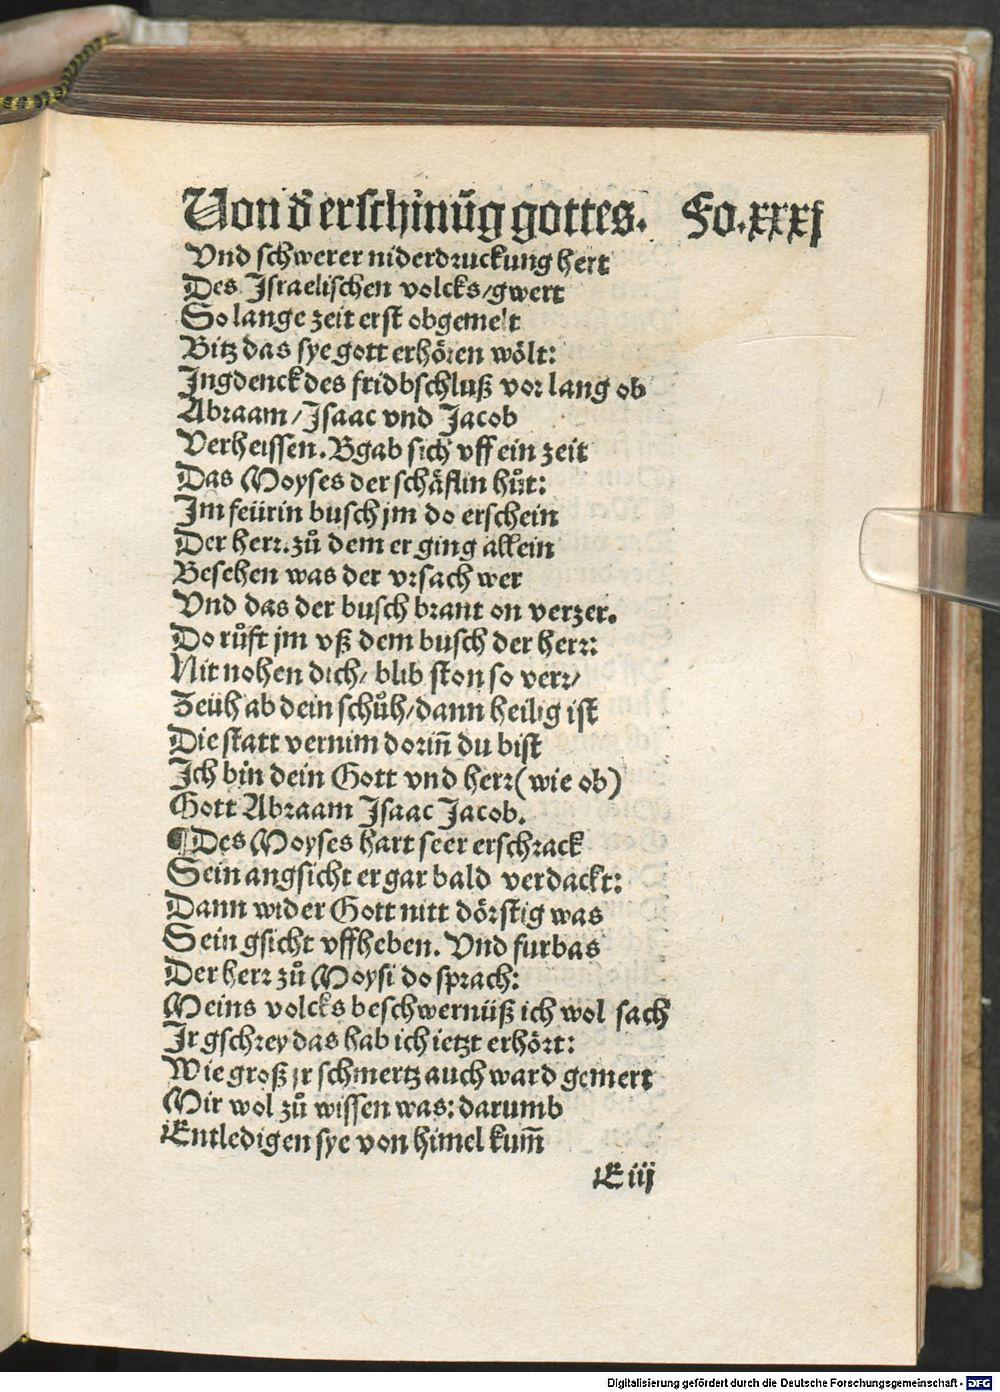 Von d̕ erschinūg gottes. Fo.xxxj
Vnd schwerer niderdruckung hert
Des Israelischen volcks/gwert
So lange zeit erst obgemelt
Bitz das sye gott erhören wölt:
Ingdenck des fridbschluß vor lang ob
Abraam/Isaac vnd Jacob
Verheissen. Bgab sich vff ein zeit
Das Moyses der schäflin hůt:
Im feürin busch jm do erschein
Der herr.zů dem er ging allein
Besehen was der vrsach wer
Vnd das der busch brant on verzer.
Do růft jm vß dem busch der herr:
Nit nohen dich/ blib ston so verr/
Zeüh ab dein schůh/dann heilig ist
Die statt vernim dorin̄ du bist
Ich bin dein Gott vnd herr(wie ob)
Gott Abraam Isaac Jacob.
¶Des Moyses hart seer erschrack
Sein angsicht er gar bald verdackt:
Dann wider Gott nitt dörstig was
Sein gsicht vffheben. Vnd furbas
Der herr zů Moysi do sprach:
Meins volcks beschwernüß ich wol sach
Ir gschrey das hab ich ietzt erhört:
Wie groß jr schmertz auch ward gemert
Mir wol zů wissen was: darumb
Entledigen sye von himel kum̄
E iij
Digitalisierung gefördert durch die Deutsche Forschungsgemeinschaft - DFG